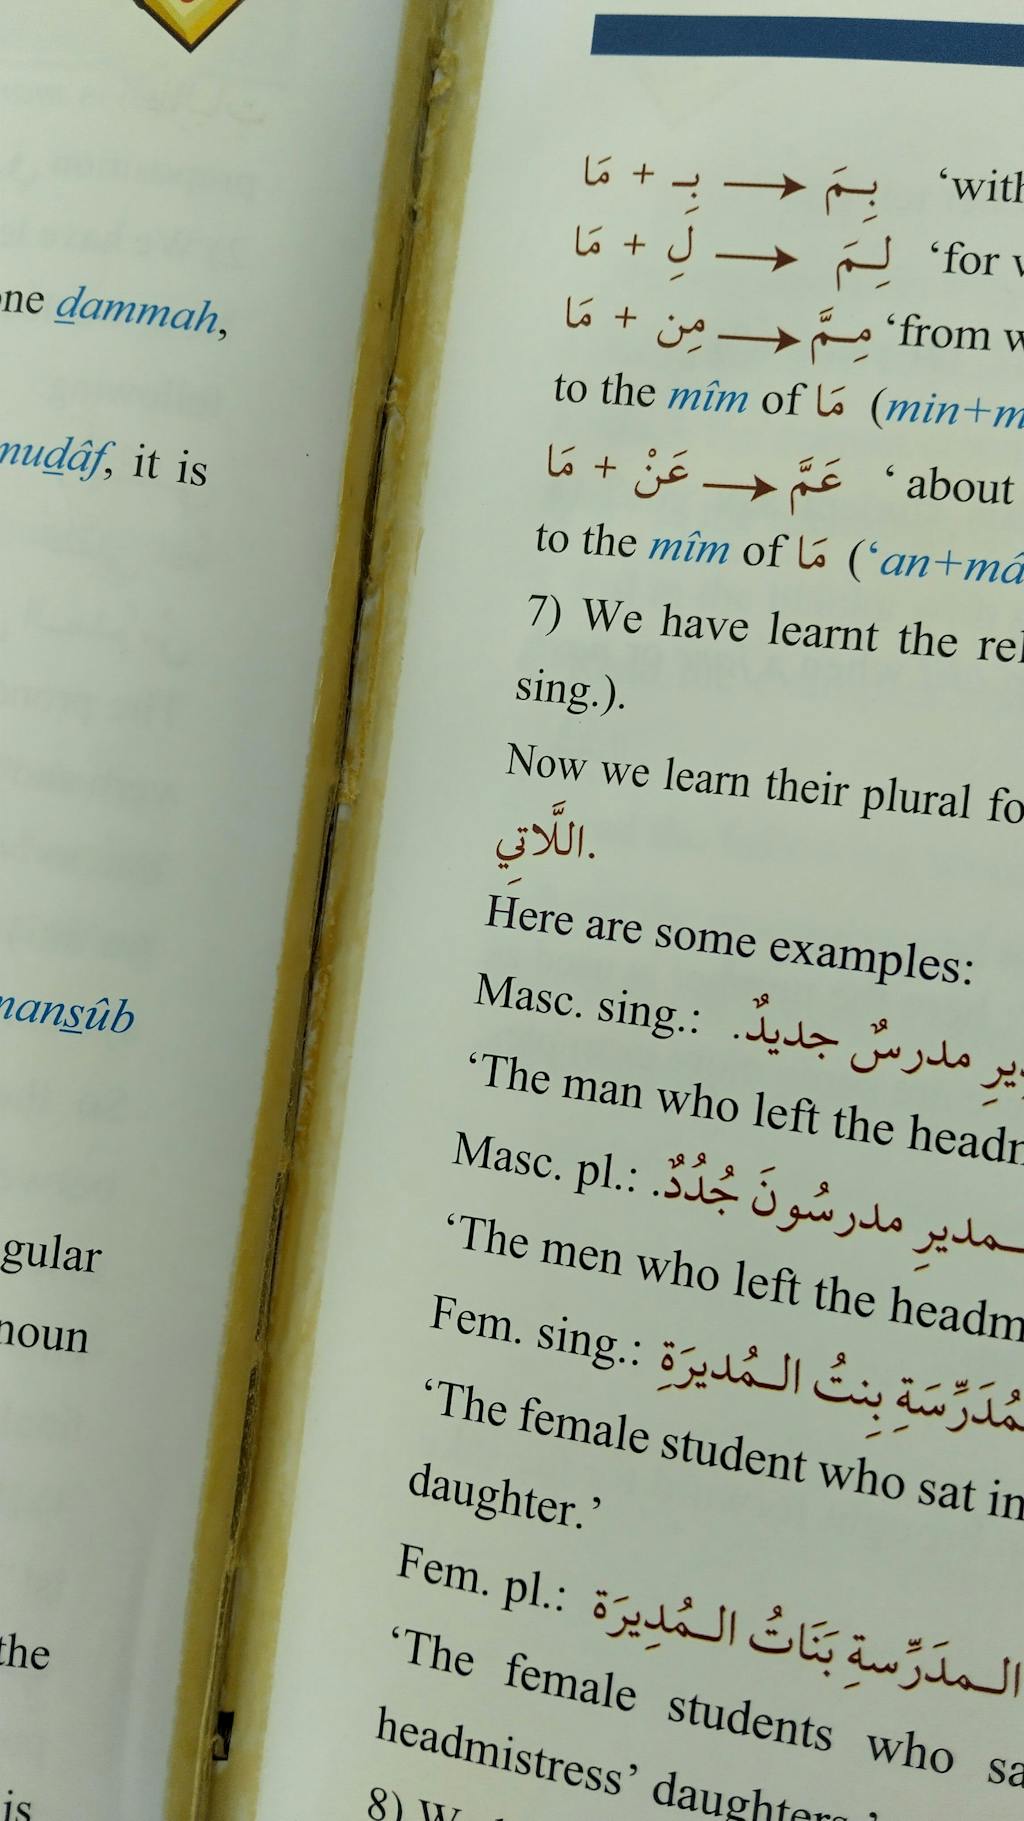 one dammah,
mudâf, it is
mansûb
gular
noun
the
is
مَا + بِـ → بِـمَ ‘with
مَا + لِ → لِـمَ ‘for
مَا + مِن → مِـمَّ ‘from
to the mîm of مَا (min+m
مَا + عَنْ → عَمَّ ‘ about
to the mîm of مَا (‘an+mâ
7) We have learnt the rel
sing.).
Now we learn their plural fo
اللَّاتِي.
Here are some examples:
Masc. sing.: ـديرِ مدرسٌ جديدٌ.
‘The man who left the headm
Masc. pl.: ـمديرِ مدرسُونَ جُدُدٌ.
‘The men who left the headm
Fem. sing.: ـمُدَرِّسَةِ بِنتُ الـمُديرَةِ
‘The female student who sat in
daughter.’
Fem. pl.: الـمدَرِّسةِ بَنَاتُ الـمُدِيرَة
‘The female students who sa
headmistress’ daughters.’
8) W